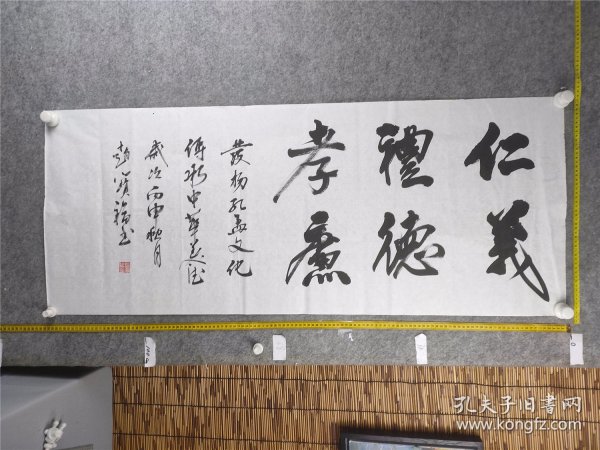 仁義
禮德
孝廉
發揚孔孟文化
傳承中華美德
歲次丙申秋月
趙寶福書
孔夫子旧書网
www.kongfz.com